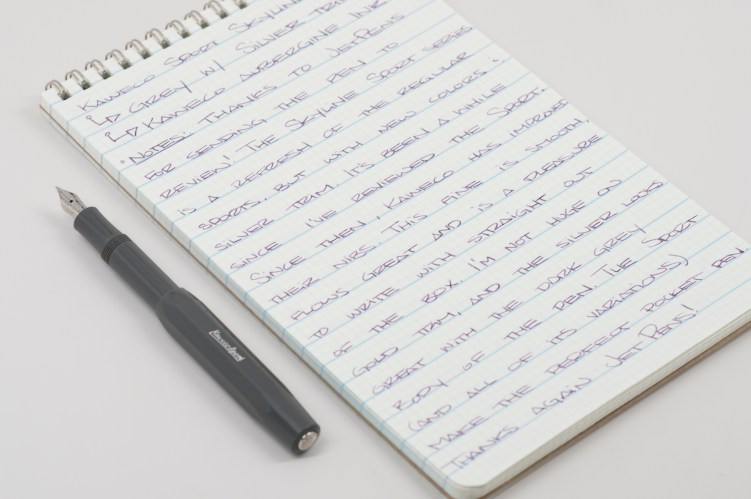 KAWECO SPORT SKYLINE
↳ GREY W/ SILVER TRIM
↳ KAWECO AUBERGINE INK
• NOTES: THANKS TO JETPENS
FOR SENDING THE PEN TO
REVIEW! THE SKYLINE SPORT SERIES
IS A REFRESH OF THE REGULAR
SPORTS, BUT WITH NEW COLORS &
SILVER TRIM. IT'S BEEN A WHILE
SINCE I'VE REVIEWED THE SPORT.
SINCE THEN, KAWECO HAS IMPROVED
THEIR NIBS. THIS FINE IS SMOOTH,
FLOWS GREAT AND IS A PLEASURE
TO WRITE WITH STRAIGHT OUT
OF THE BOX. I'M NOT HUGE ON
GOLD TRIM, AND THE SILVER LOOKS
GREAT WITH THE DARK GREY
BODY OF THE PEN. THE SPORT
(AND ALL OF ITS VARIATIONS)
MAKE THE PERFECT POCKET PEN.
THANKS AGAIN JETPENS!